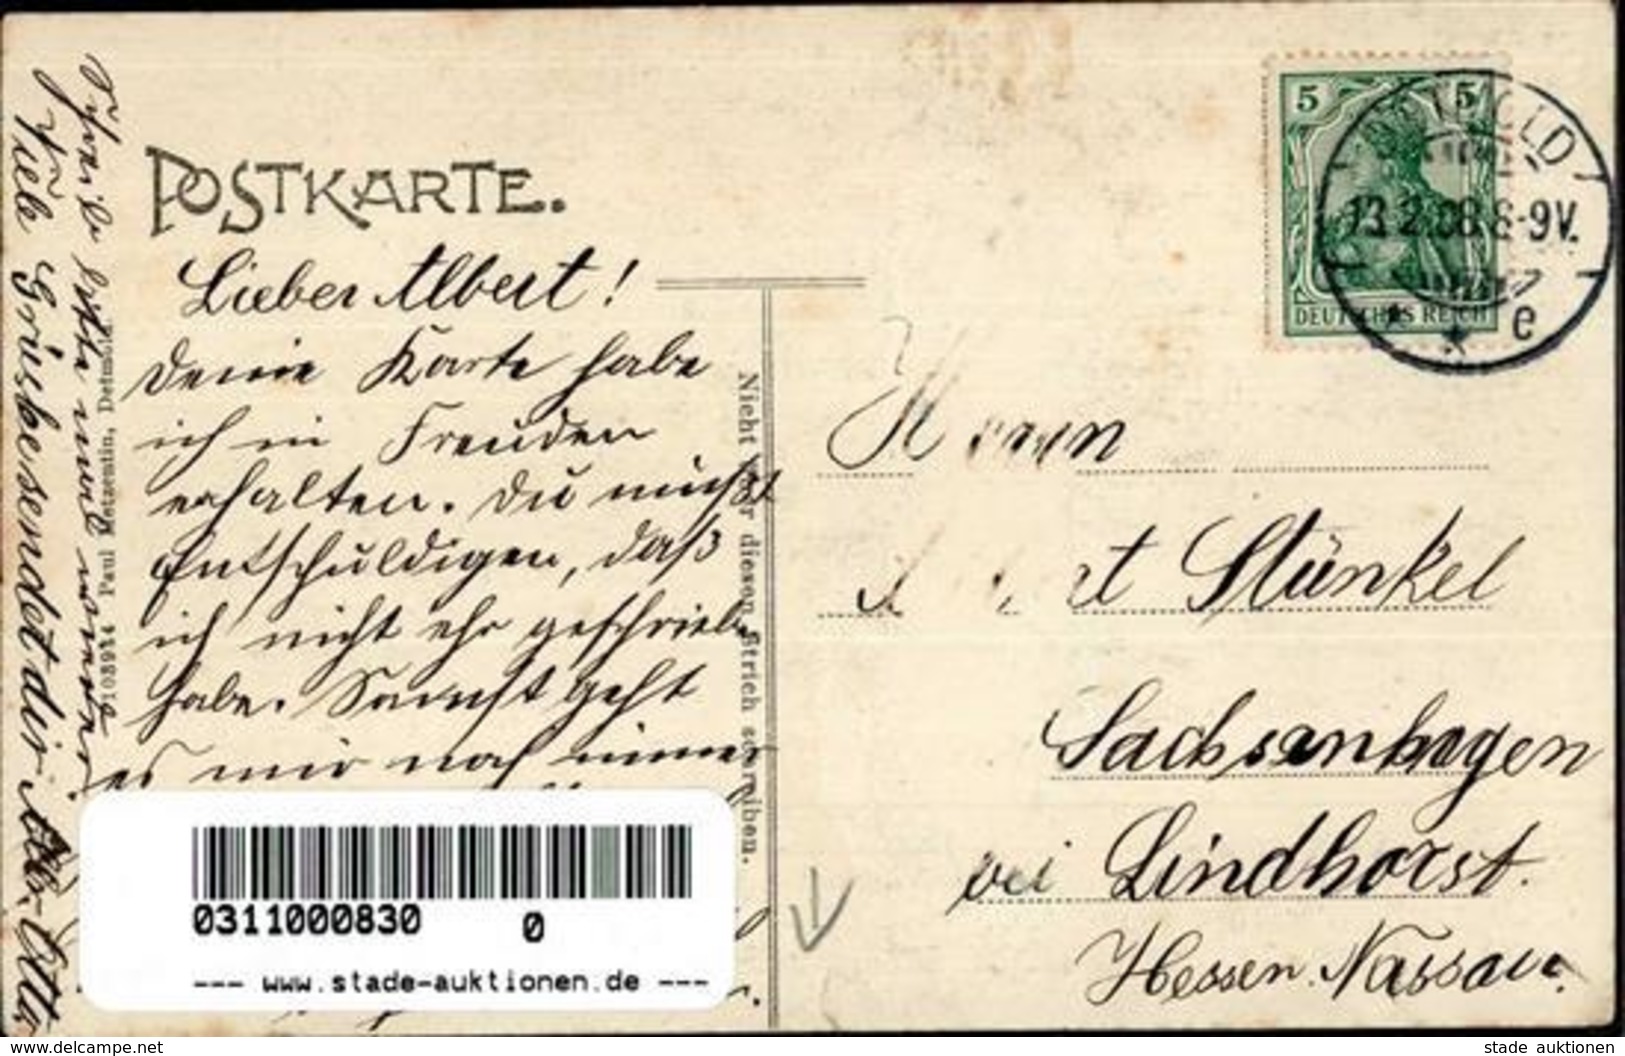 POSTKARTE.
Lieber Albert!
Deine Karte habe
ich in Freuden
erhalten. Du mußt
Entschuldigen, daß
ich nicht ehr geschrieben
habe. Sonst geht
es mir noch immer
Viele Grüße sendet dir
Otto
103934 Paul Metzentin, Detmold
Nicht über diesen Strich schreiben.
5 5
DEUTSCHES REICH
DETMOLD
13.2.08.8-9V.
* * e
Herrn
Albert Stünkel
Sachsenhagen
bei Lindhorst.
Hessen. Nassau.
0311000830 0
--- www.stade-auktionen.de ---
www.delcampe.net
stade auktionen